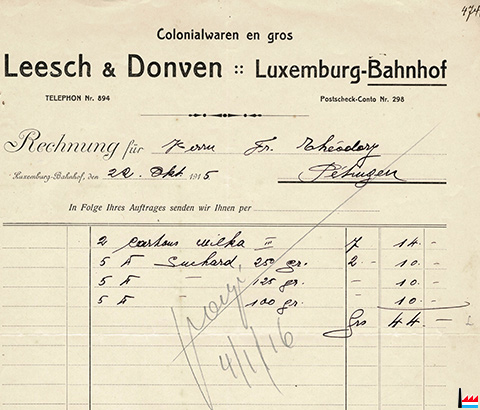 474
Colonialwaren en gros
Leesch & Donven :: Luxemburg-Bahnhof
TELEPHON Nr. 894 Postscheck-Conto Nr. 298
Rechnung für Herrn Fr. Théodory
Luxemburg-Bahnhof, den 22. Okt. 1915 Pétingen
In Folge Ihres Auftrages senden wir Ihnen per
2 Cartons Milka III 7 14.-
5 ℔ Suchard 250 gr. 2.- 10.-
5 ℔ - 125 gr. - 10.-
5 ℔ - 100 gr. - 10.-
Grs 44.-
4/1/16